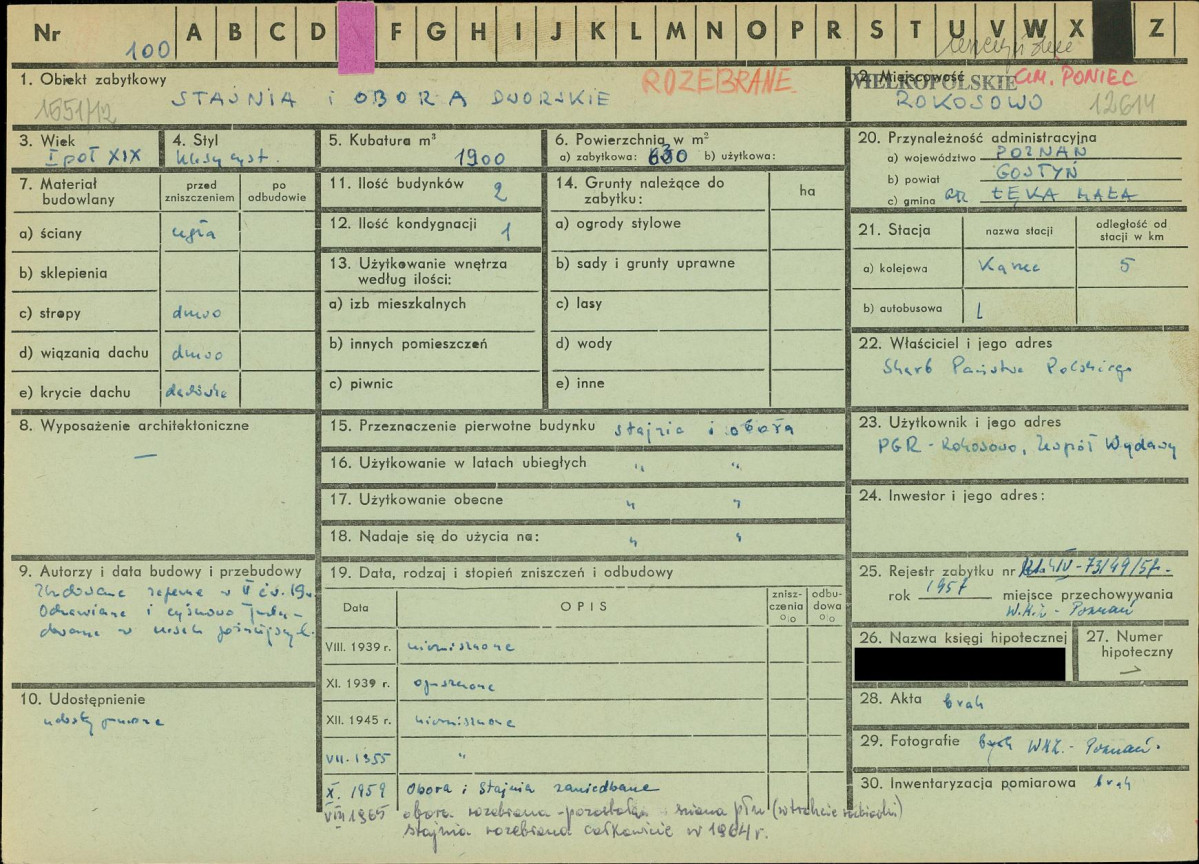 Nr 100 A B C D F G H I J K L M N O P R S T U V W X Z
1. Obiekt zabytkowy
1651/12 STAJNIA i OBORA DWORSKIE
ROZEBRANE
2. Miejscowość
WIELKOPOLSKIE GM. PONIEC
ROKOSOWO 12614
3. Wiek
I poł XIX
4. Styl
klasycyst.
5. Kubatura m³
1900
6. Powierzchnia w m²
a) zabytkowa: b) użytkowa:
20. Przynależność administracyjna
a) województwo POZNAŃ
b) powiat GOSTYŃ
c) gmina GR ŁĘKA MAŁA
7. Materiał budowlany
przed zniszczeniem
po odbudowie
a) ściany cegła
b) sklepienia
c) stropy drewo
d) wiązania dachu drewo
e) krycie dachu dachówka
11. Ilość budynków 2
12. Ilość kondygnacji 1
13. Użytkowanie wnętrza
według ilości:
a) izb mieszkalnych
b) innych pomieszczeń
c) piwnic
14. Grunty należące do
zabytku:
ha
a) ogrody stylowe
b) sady i grunty uprawne
c) lasy
d) wody
e) inne
21. Stacja
nazwa stacji
odległość od
stacji w km
a) kolejowa Kania 5
b) autobusowa
22. Właściciel i jego adres
Skarb Państwa Polskiego
8. Wyposażenie architektoniczne
—
15. Przeznaczenie pierwotne budynku stajnia i obora
16. Użytkowanie w latach ubiegłych " "
17. Użytkowanie obecne " "
18. Nadaje się do użycia na: " "
23. Użytkownik i jego adres
PGR - Rokosowo, Zespół Wydawy
24. Inwestor i jego adres:
9. Autorzy i data budowy i przebudowy
Zbudowane w II ćw. 19w.
Odnawiane i
w latach późniejszych.
10. Udostępnienie
udostępnione
19. Data, rodzaj i stopień zniszczeń i odbudowy
Data
OPIS
znisz-
czenia
%
odbu-
dowa
%
VIII. 1939 r. niezniszczone
XI. 1939 r. opuszczone
XII. 1945 r. niezniszczone
VII - 1955 "
X. 1959 Obora i Stajnia zaniedbane
VIII 1965 obora rozebrana - pozostała ściana płn (w trakcie rozbiórki)
stajnia rozebrana całkowicie w 1964 r.
25. Rejestr zabytku nr IV-73/49/57.
rok 1957 miejsce przechowywania
W.K.Z - Poznań
26. Nazwa księgi hipotecznej
27. Numer
hipoteczny
28. Akta brak
29. Fotografie WKZ. - Poznań.
30. Inwentaryzacja pomiarowa brak